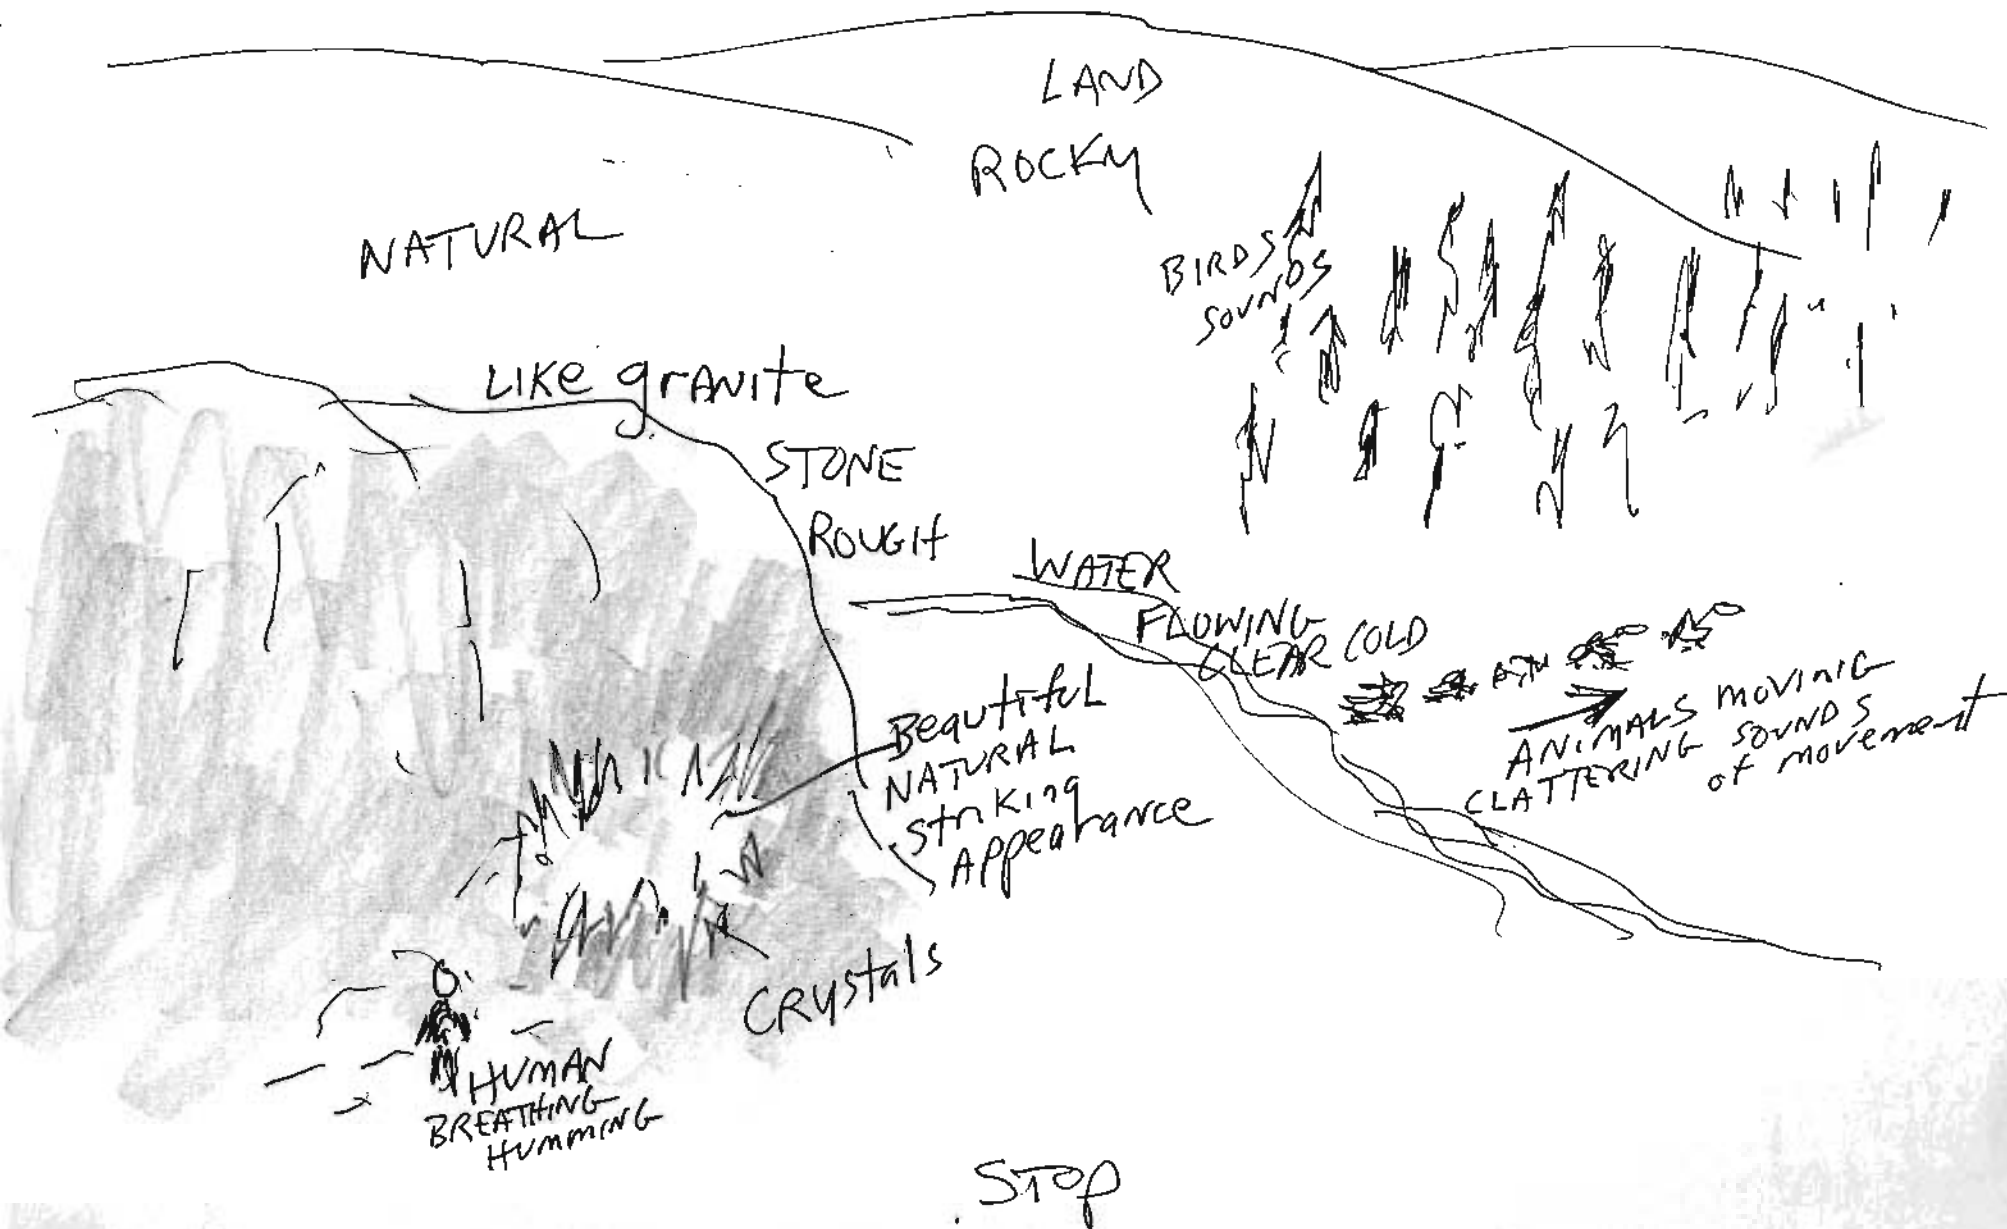 LAND
ROCKY
NATURAL
BIRDS
SOUNDS
LIKE grANITE
STONE
ROUGH
WATER
FLOWING
CLEAR COLD
ANIMALS MOVING
CLATTERING SOUNDS
of movement
Beautiful
NATURAL
striking
Appearance
CRYStals
HUMAN
BREATHING
HUMMING
STOP